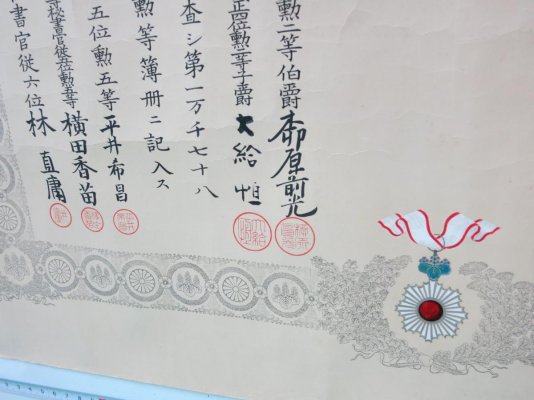 勲二等伯爵柳原前光
子爵大給恒
査シ第一万千七十八
勲等簿冊ニ記入ス
五位勲五等平井希昌
秘書官従六位勲五等横田香苗
書官従六位林直庸